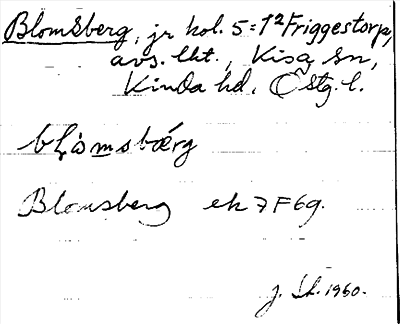 Blomsberg, jr kol. 5:12 Friggestorp,
avs. lht., Kisa sn,
Kinda hd, Östg. l.
blòmsbærg
Blomsberg ek 7 F 6g.
1960.